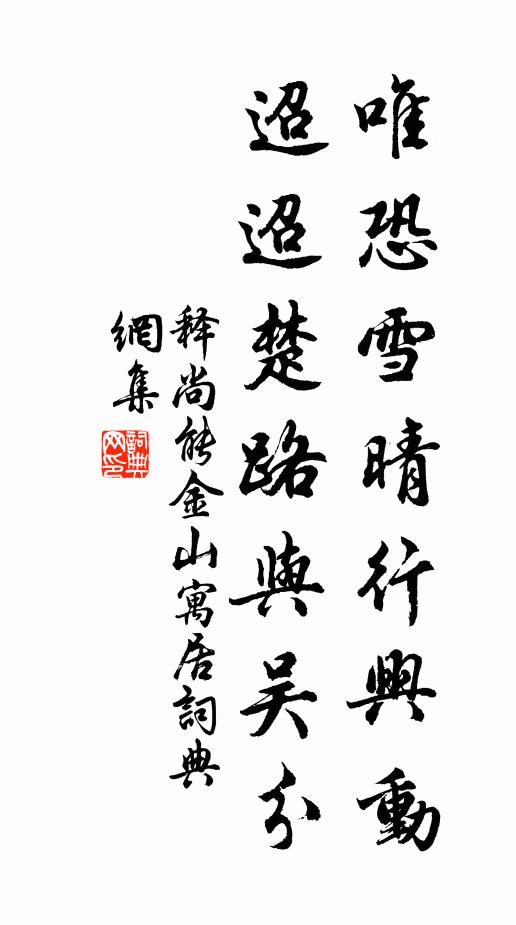 唯恐雪晴行興動
迢迢楚路與吴分
释尚能金山寓居詞典
網集
詞典網印